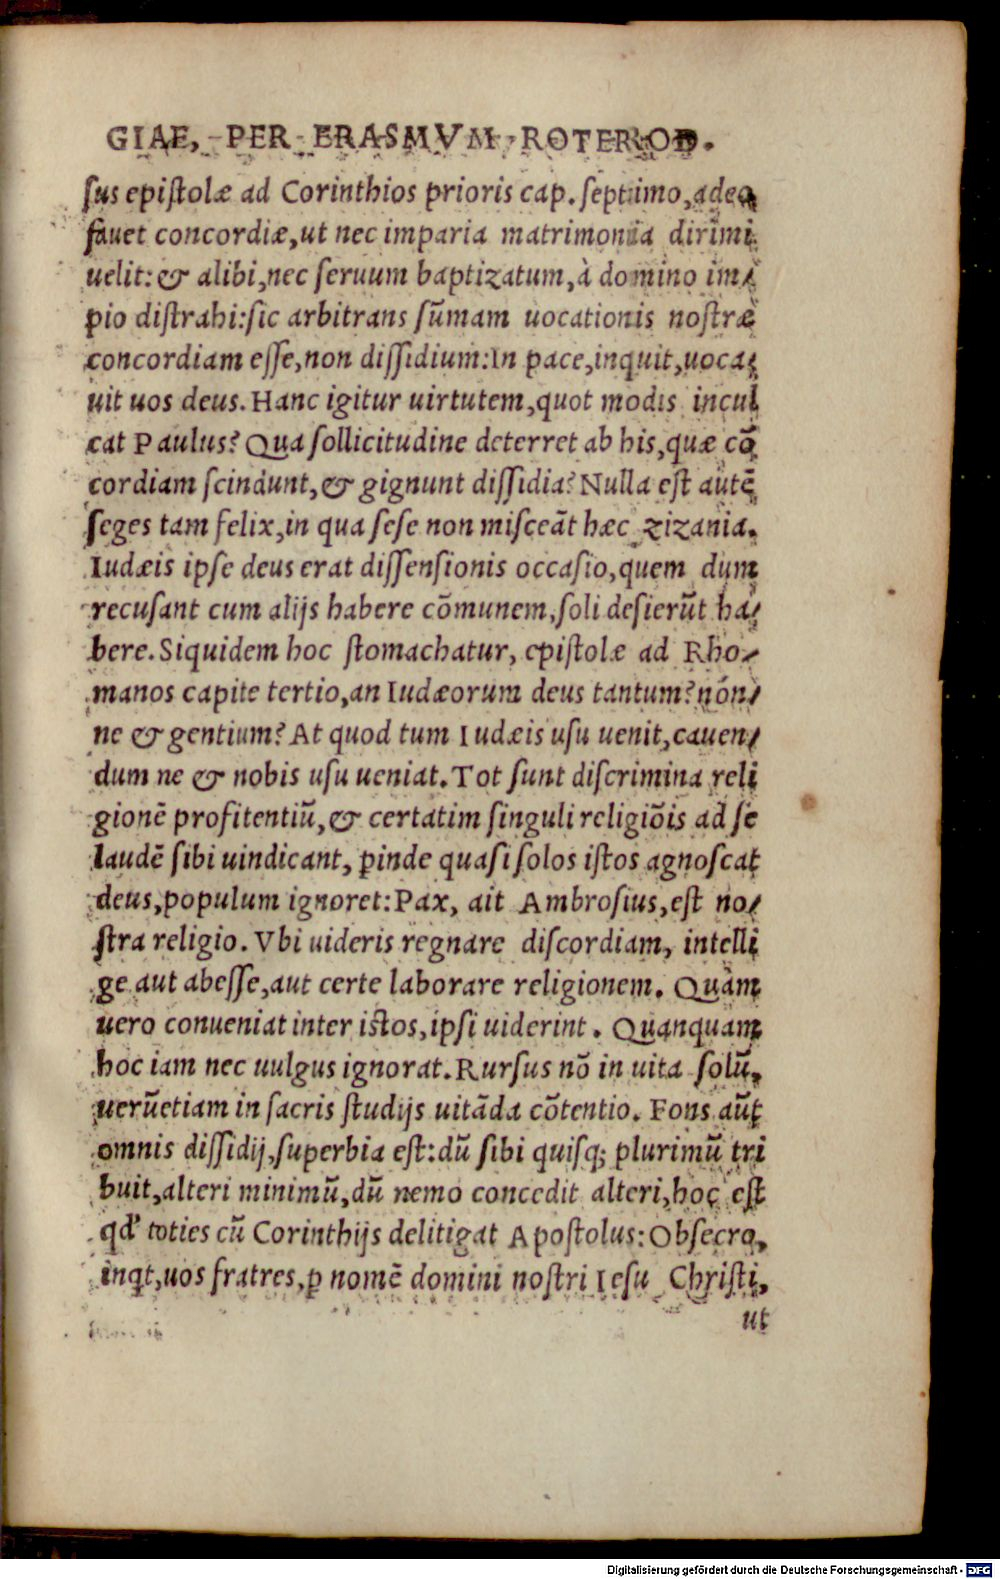 GIAE, PER ERASMVM ROTEROD.
sus epistolæ ad Corinthios prioris cap. septimo, adeo
fauet concordiæ, ut nec imparia matrimonia dirimi
uelit: & alibi, nec seruum baptizatum, à domino im/
pio distrahi: sic arbitrans sūmam uocationis nostræ
concordiam esse, non dissidium: In pace, inquit, uoca/
uit uos deus. Hanc igitur uirtutem, quot modis incul
cat Paulus? Qua sollicitudine deterret ab his, quæ cō
cordiam scindunt, & gignunt dissidia? Nulla est autē
seges tam felix, in qua sese non misceāt hæc zizania.
Iudæis ipse deus erat dissensionis occasio, quem dum
recusant cum alijs habere cōmunem, soli desierūt ha/
bere. Siquidem hoc stomachatur, epistolæ ad Rho/
manos capite tertio, an Iudæorum deus tantum? nón/
ne & gentium? At quod tum Iudæis usu uenit, cauen/
dum ne & nobis usu ueniat. Tot sunt discrimina reli
gionē profitentiū, & certatim singuli religiōis ad se
laudē sibi uindicant, ꝓinde quasi solos istos agnoscat
deus, populum ignoret: Pax, ait Ambrosius, est no/
stra religio. Vbi uideris regnare discordiam, intelli
ge aut abesse, aut certe laborare religionem. Quàm
uero conueniat inter istos, ipsi uiderint. Quanquam
hoc iam nec uulgus ignorat. Rursus nō in uita solū,
uerūetiam in sacris studijs uitāda cōtentio. Fons aūt
omnis dissidij, superbia est: dū sibi quisq; plurimū tri
buit, alteri minimū, dū nemo concedit alteri, hoc est
qd' toties cū Corinthijs delitigat Apostolus: Obsecro,
inqt, uos fratres, ꝑ nomē domini nostri Iesu Christi,
ut
Digitalisierung gefördert durch die Deutsche Forschungsgemeinschaft - DFG